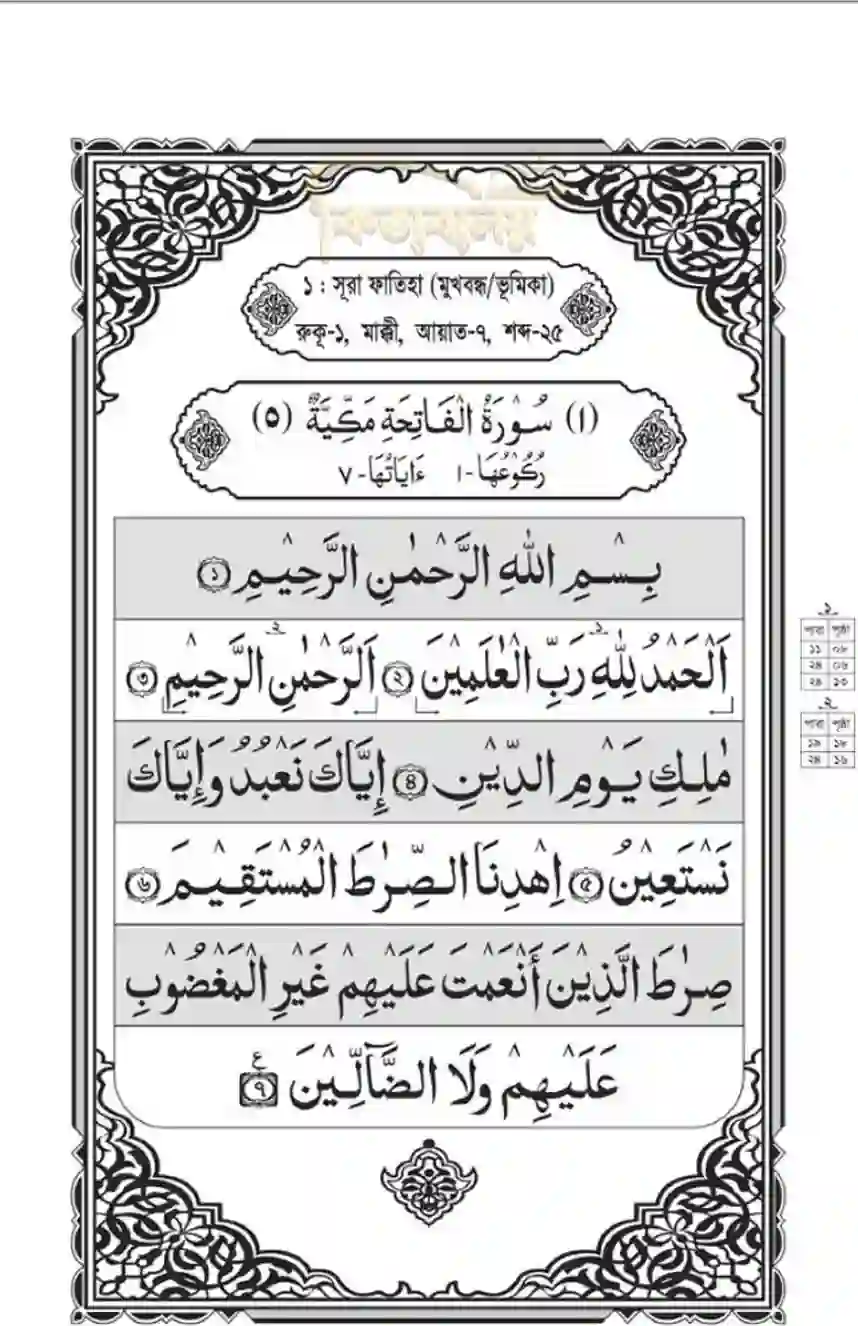 কিতাবালয়
১ : সূরা ফাতিহা (মুখবন্ধ/ভূমিকা)
রুকূ-১, মাক্কী, আয়াত-৭, শব্দ-২৫
(١) سُوْرَةُ الْفَاتِحَةِ مَكِّيَّةٌ (٥)
رُكُوْعُهَا-١ ءَايَاتُهَا-٧
بِسْمِ اللّٰهِ الرَّحْمٰنِ الرَّحِيْمِ ১
اَلْحَمْدُ لِلّٰهِ رَبِّ الْعٰلَمِيْنَ ২ اَلرَّحْمٰنِ الرَّحِيْمِ ৩
مٰلِكِ يَوْمِ الدِّيْنِ ৪ إِيَّاكَ نَعْبُدُ وَإِيَّاكَ
نَسْتَعِيْنُ ৫ اِهْدِنَا الصِّرٰطَ الْمُسْتَقِيْمَ ৬
صِرٰطَ الَّذِيْنَ أَنْعَمْتَ عَلَيْهِمْ غَيْرِ الْمَغْضُوْبِ
عَلَيْهِمْ وَلَا الضَّآلِّيْنَ ৭ ع
১
পারা পৃষ্ঠা
১১ ০৮
২৪ ০৬
২৪ ১৩
২
পারা পৃষ্ঠা
১৯ ১৮
২৪ ১৬